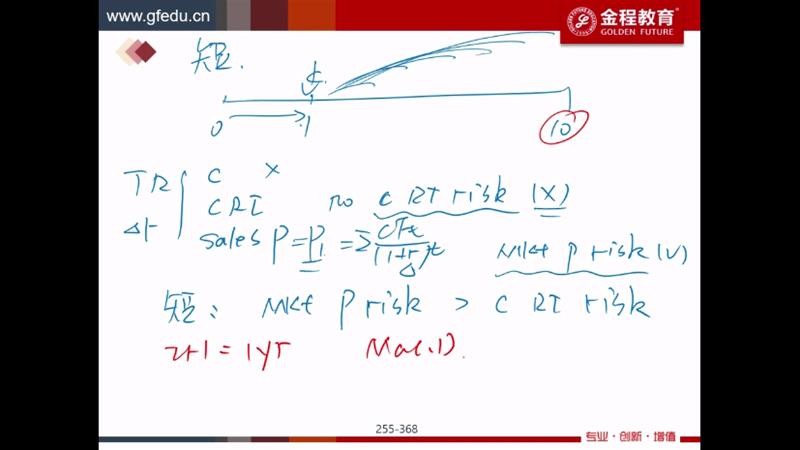 www.gfedu.cn
金程教育
GOLDEN FUTURE
短.
0 1 10
TR C X
CRI no C RI risk (X)
Δr Sales P=P₁=Σ CFt/(1+r)^t Mkt P risk (V)
Δ
短: Mkt P risk > C RI risk
= 1yr Mac.D.
255-368
专业·创新·增值